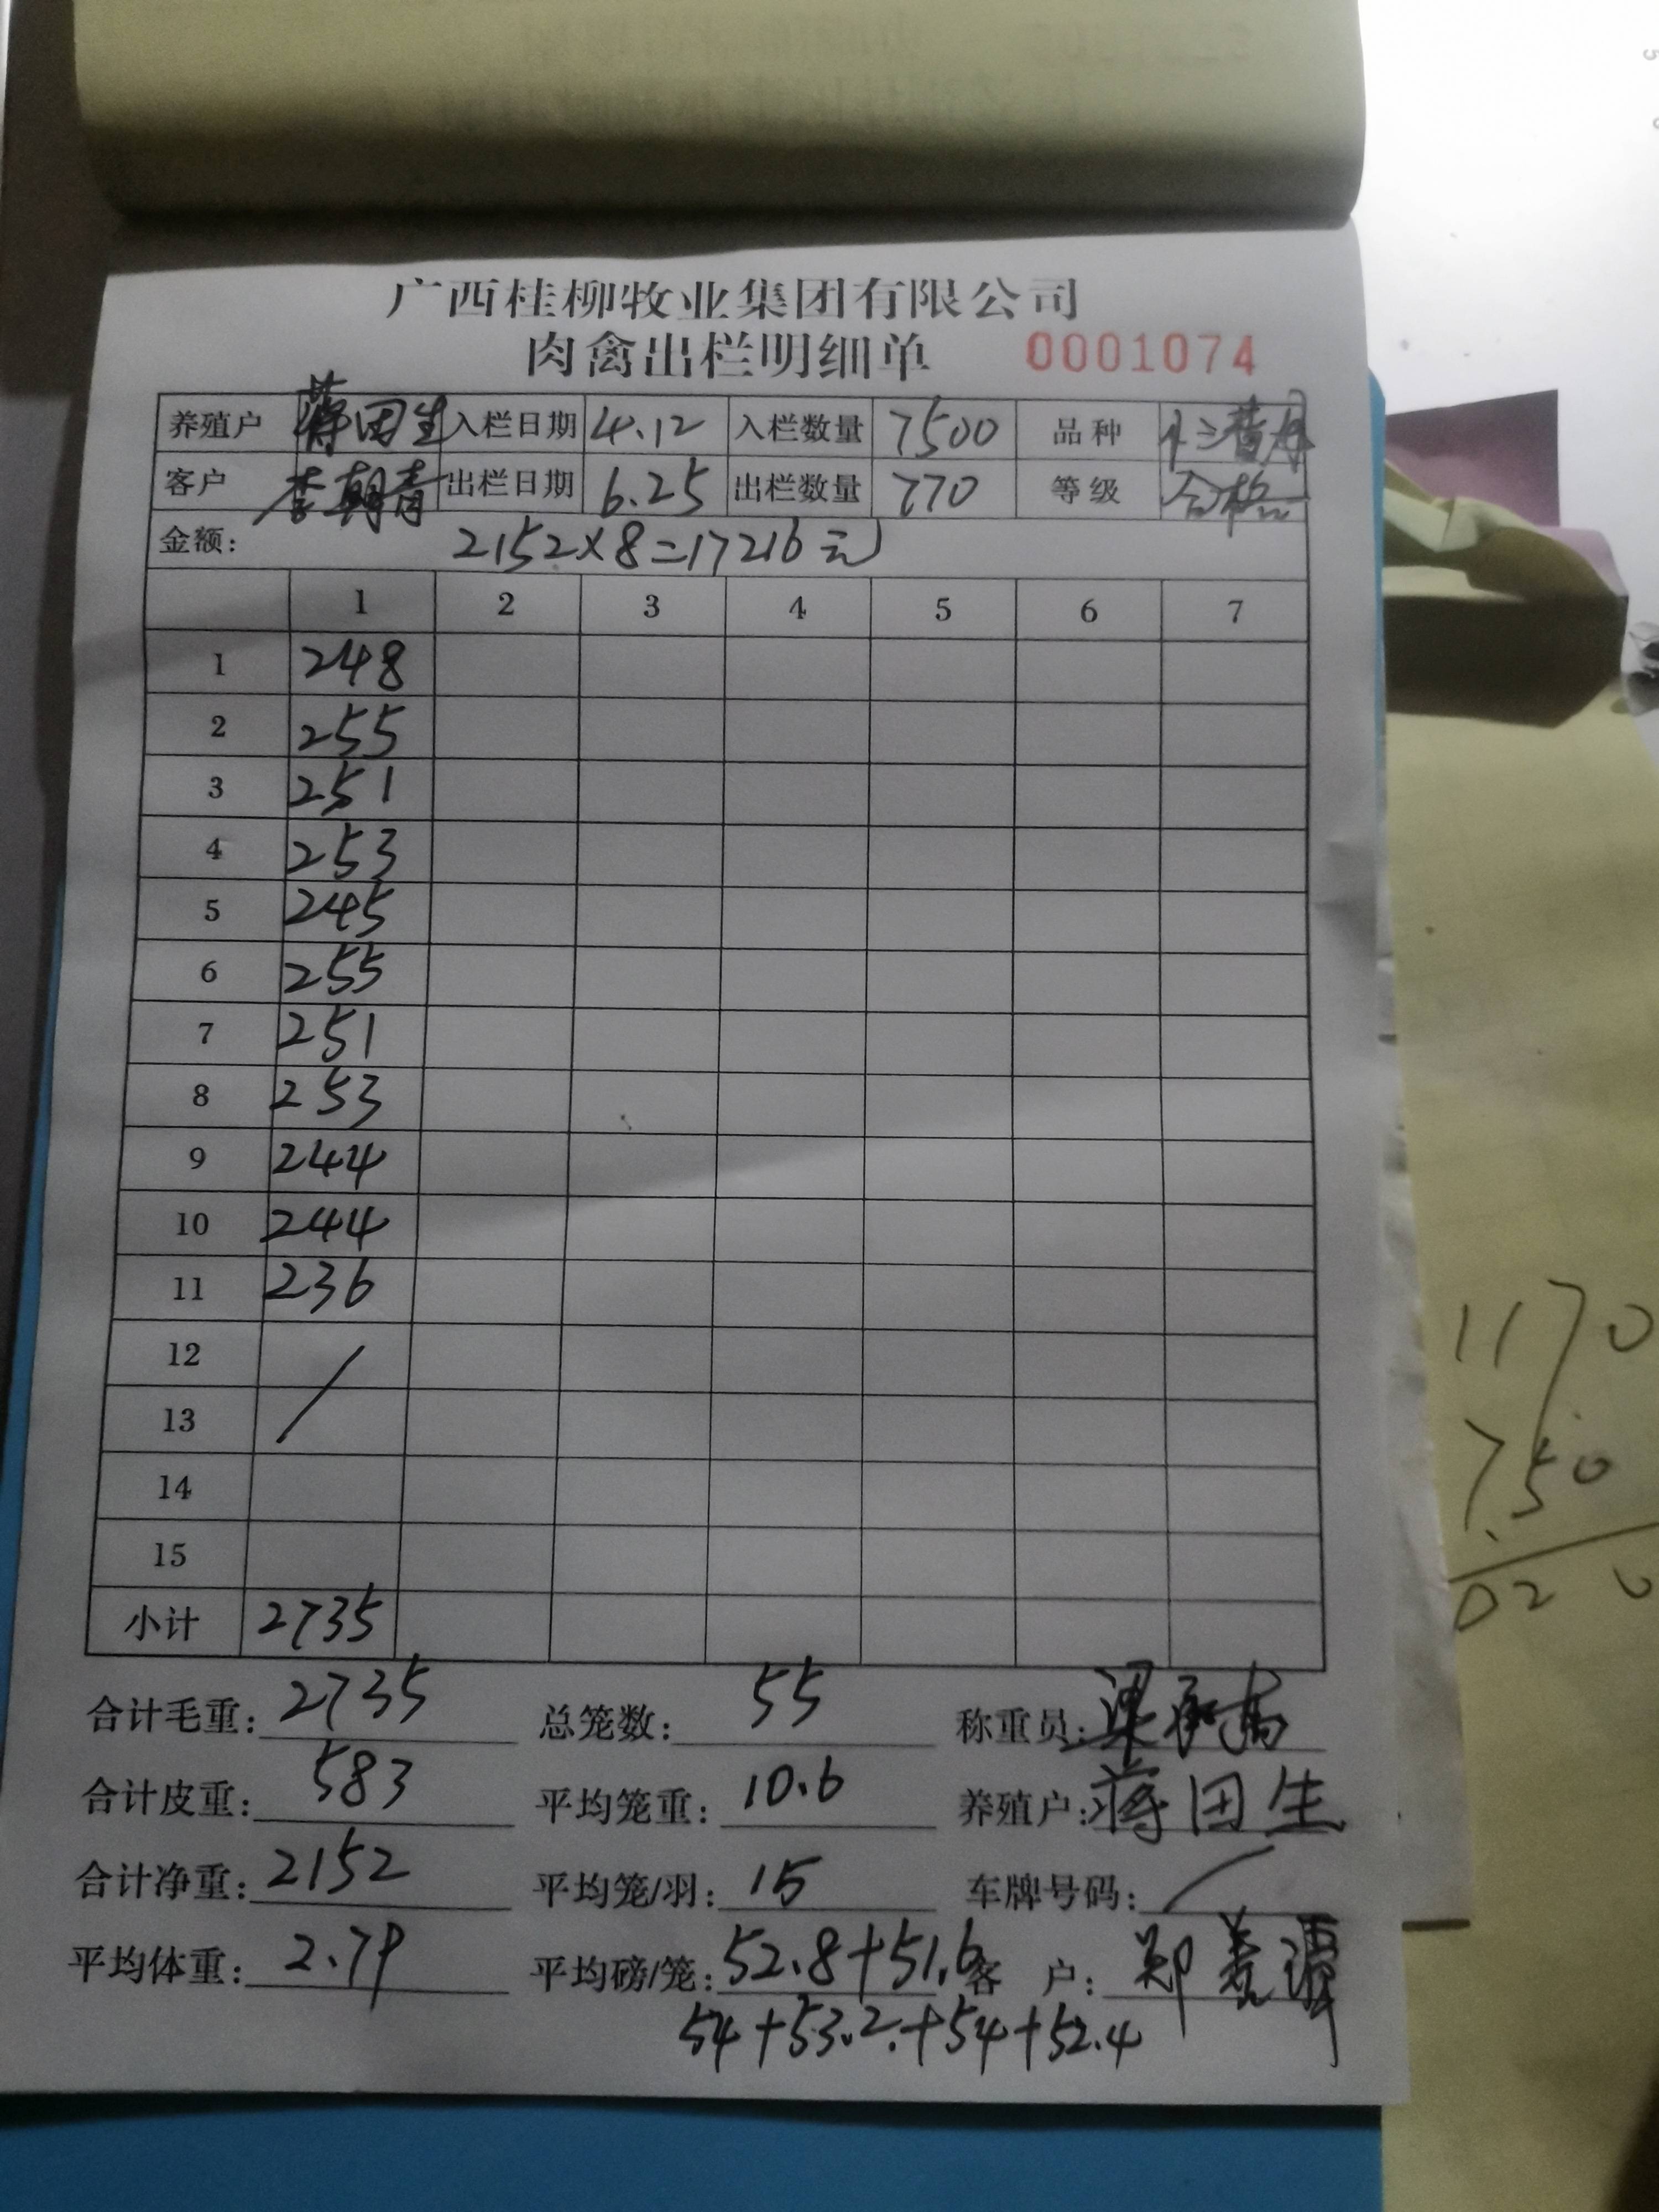 广西桂柳牧业集团有限公司
肉禽出栏明细单 0001074
养殖户 蒋田生 入栏日期 4.12 入栏数量 7500 品种
客户 李朝青 出栏日期 6.25 出栏数量 770 等级 合格
金额: 2152×8=17216元
1 2 3 4 5 6 7
1 248
2 255
3 251
4 253
5 245
6 255
7 251
8 253
9 244
10 244
11 236
12
13
14
15
小计 2735
合计毛重: 2735 总笼数: 55 称重员:
合计皮重: 583 平均笼重: 10.6 养殖户: 蒋田生
合计净重: 2152 平均笼/羽: 15 车牌号码: /
平均体重: 2.79 平均磅/笼: 52.8+51.6 客户: 郑
54+53.2+54+52.4
1170
750